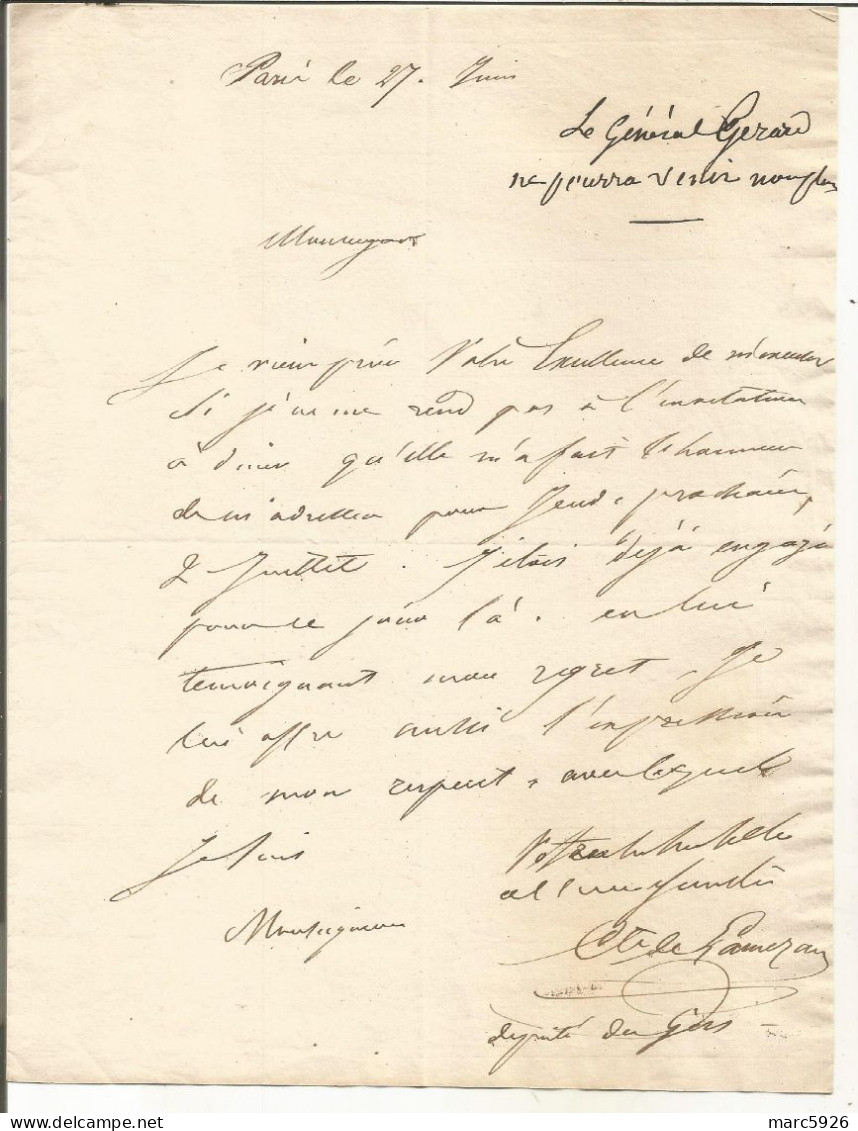 Paris le 27. Juin
Le Général Gerard
ne pourra venir non plus
Monseigneur
Je viens prier Votre Excellence de m'excuser
si je ne me rend pas à l'invitation
à diner qu'elle m'a fait l'honneur
de m'adresser pour Jeudi prochain,
2 Juillet. J'etois déjà engagé
pour ce jour là. en lui
temoignant mon regret, Je
lui offre aussi l'expression
de mon respect, avec lequel
Je suis
Votre très humble
et obeissant
Monseigneur
Cte de
député du Gers
marc5926